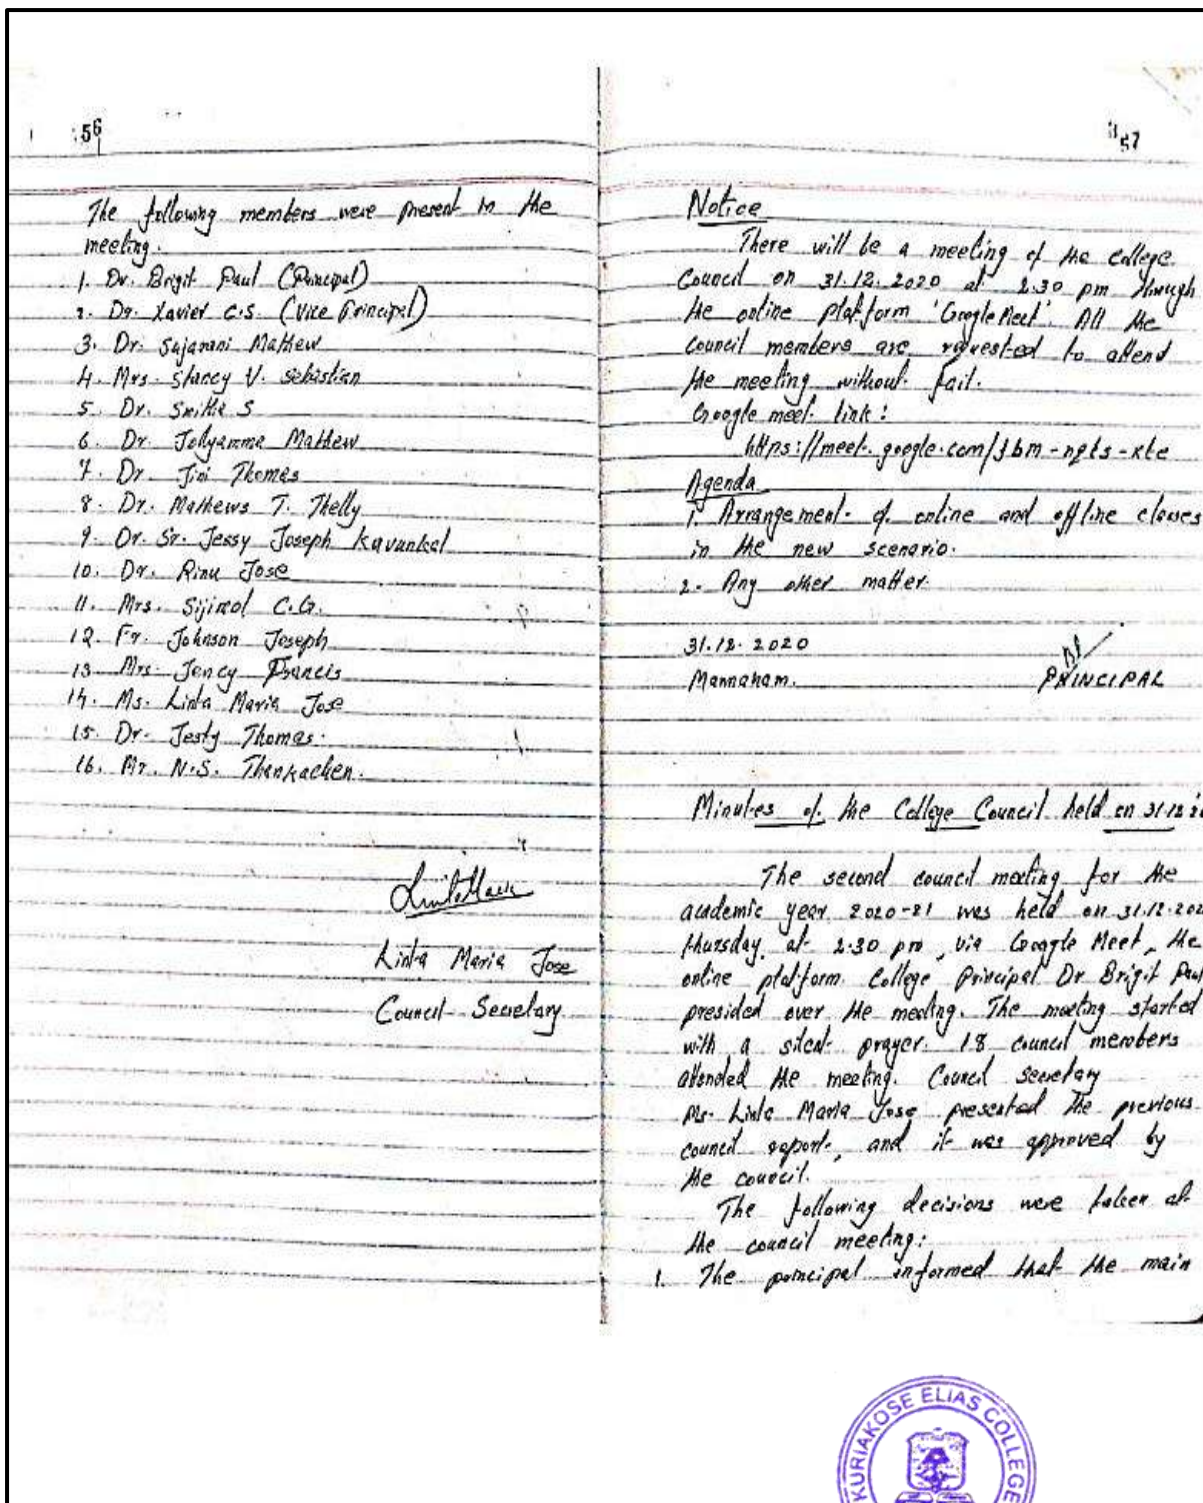 56
The following members were present in the
meeting.
1. Dr. Brigit Paul (Principal)
2. Dr. Xavier C.S. (Vice Principal)
3. Dr. Sujarani Mathew
4. Mrs. Stancy V. Sebastian
5. Dr. Smitha S
6. Dr. Jollyamma Mathew
7. Dr. Jini Thomas
8. Dr. Mathews T. Thelly
9. Dr. Sr. Jessy Joseph Kavunkal
10. Dr. Rinu Jose
11. Mrs. Sijimol C.G.
12. Fr. Johnson Joseph
13. Mrs. Jency Francis
14. Ms. Linta Maria Jose
15. Dr. Jesty Thomas.
16. Mr. N.S. Thankachen.
Linta Maria Jose
Council Secretary
57
Notice
There will be a meeting of the college
Council on 31.12.2020 at 2.30 pm through
the online platform 'Google Meet'. All the
council members are requested to attend
the meeting without fail.
Google meet link:
https://meet.google.com/
Agenda
1. Arrangement of online and offline classes
in the new scenario.
2. Any other matter.
31.12.2020
Mannanam.
PRINCIPAL
Minutes of the College Council held on 31.12.
The second council meeting for the
academic year 2020-21 was held on 31.12.202
thursday, at 2.30 pm, via Google Meet, the
online platform. College Principal Dr Brigit Paul
presided over the meeting. The meeting started
with a silent prayer. 18 council members
attended the meeting. Council secretary
Ms. Linta Maria Jose presented the previous
council report, and it was approved by
the council.
The following decisions were taken at
the council meeting:
1. The principal informed that the main
KURIAKOSE ELIAS COLLEGE